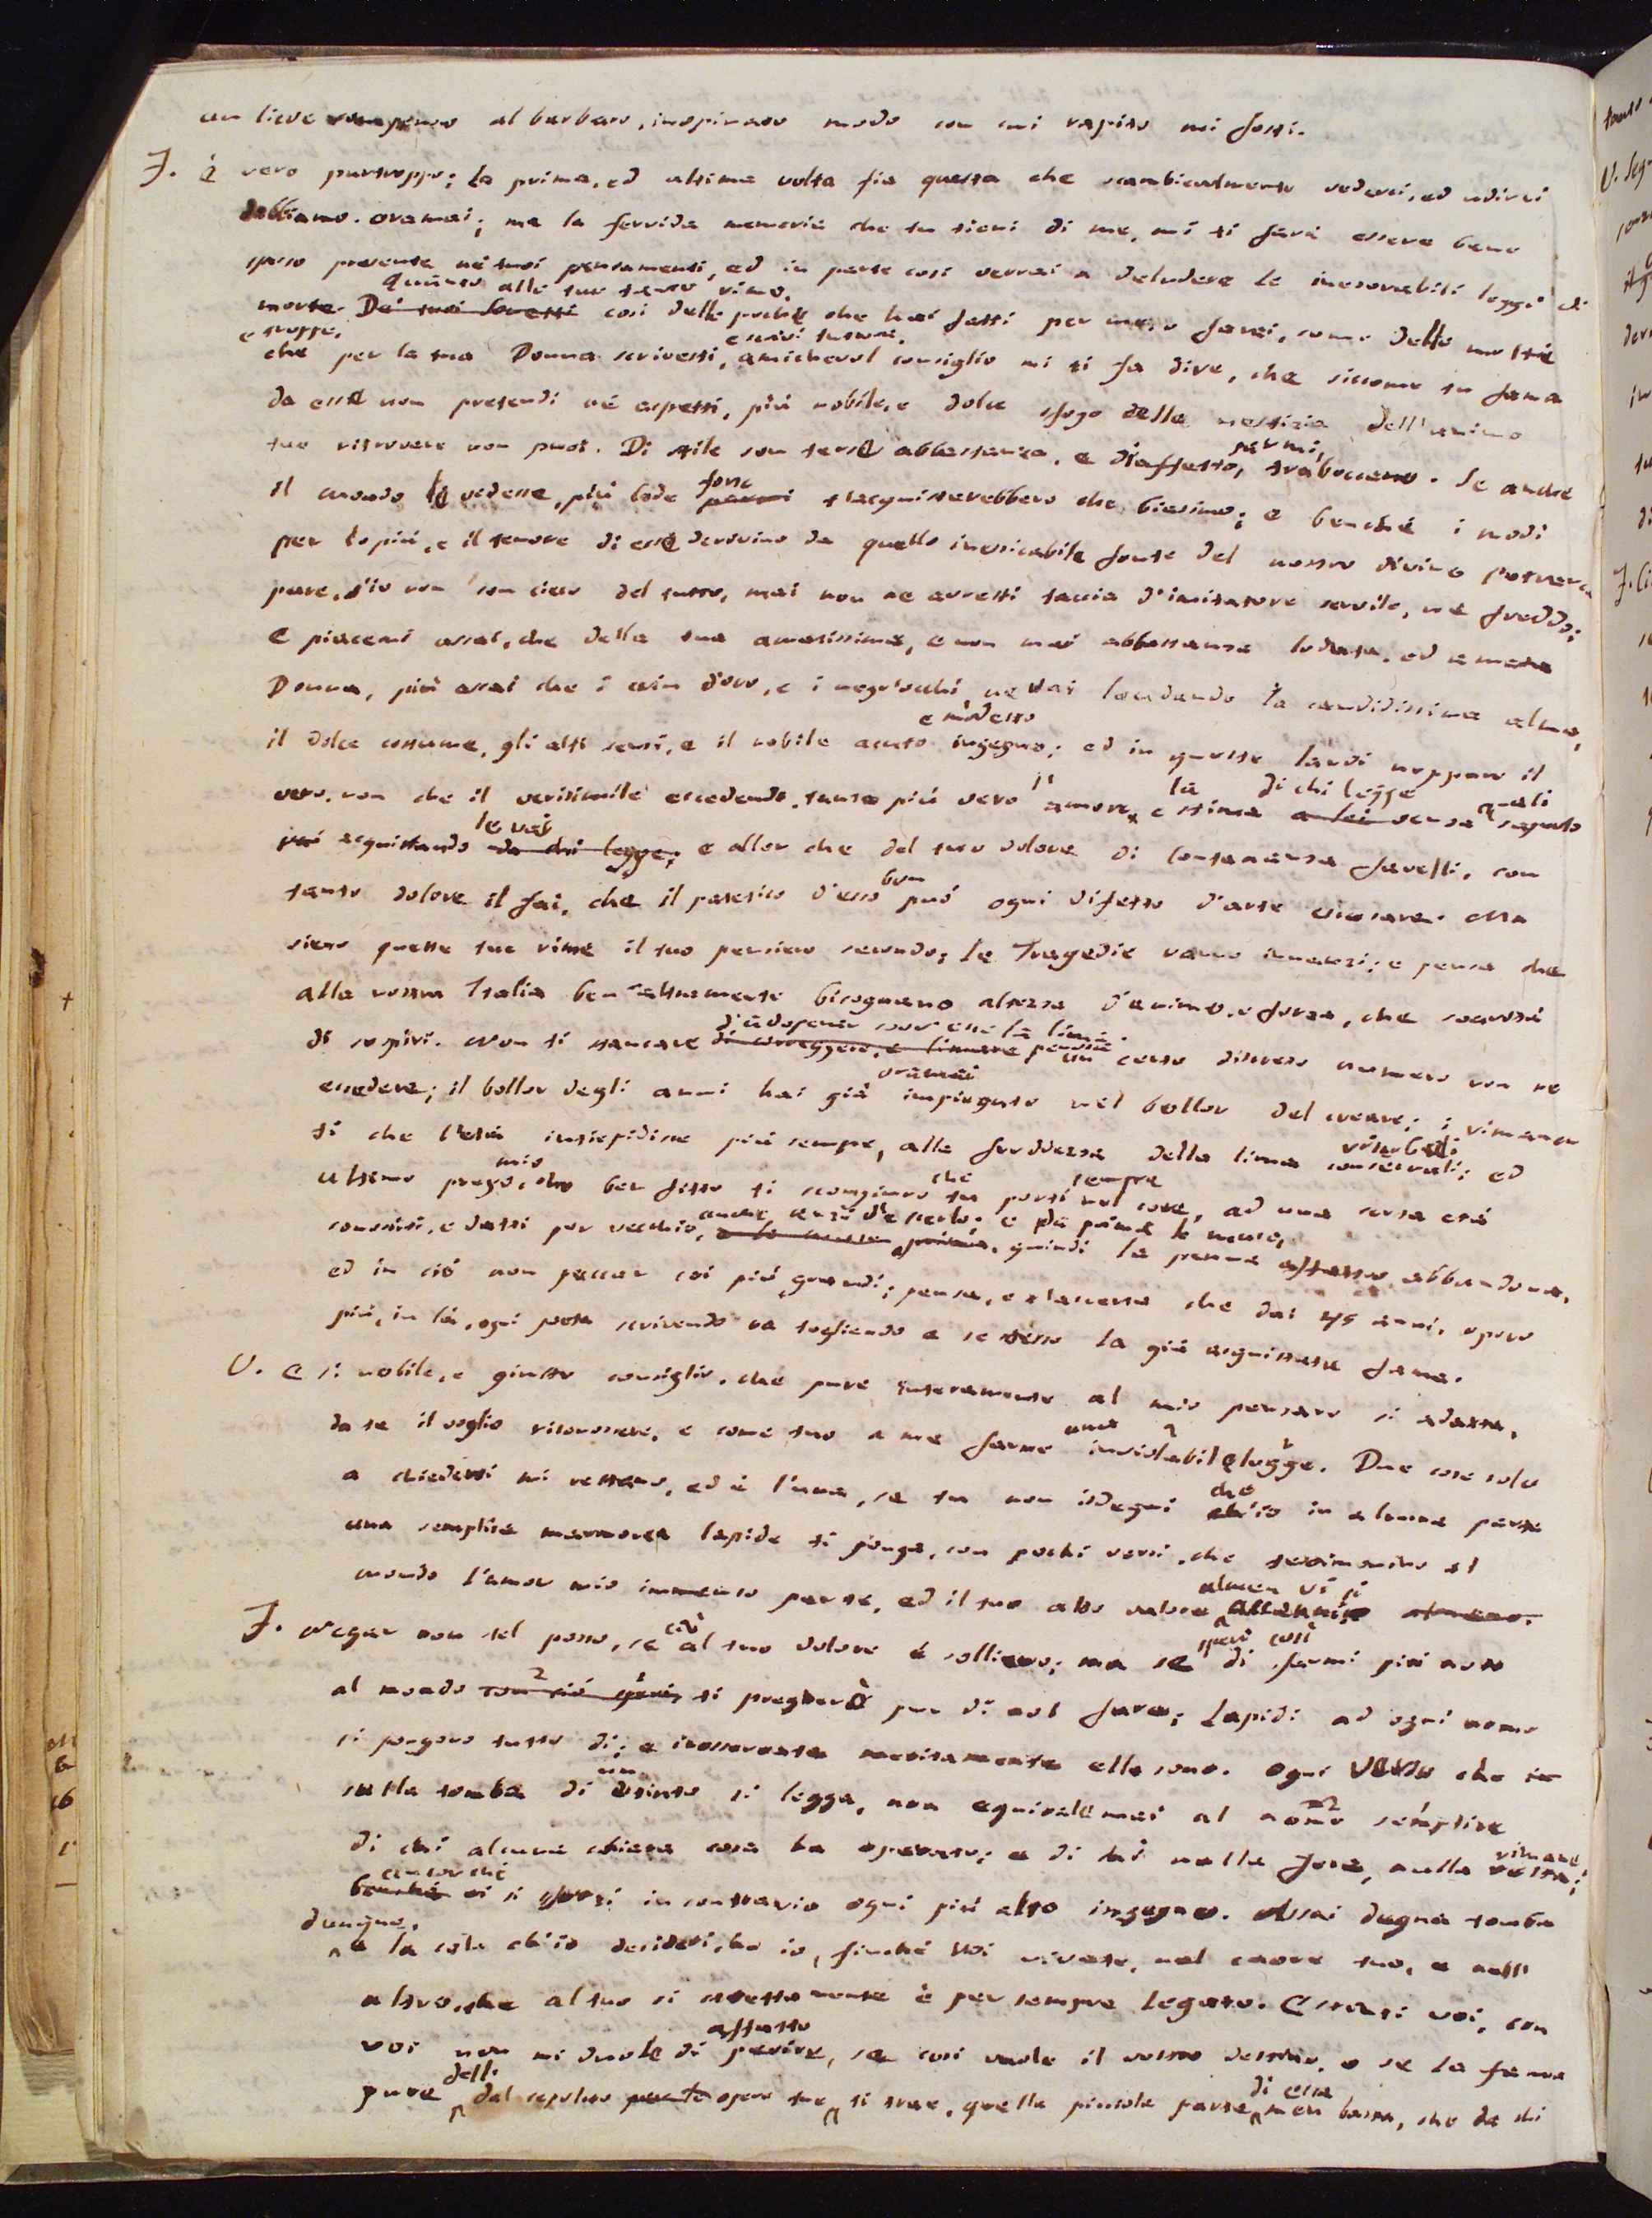 un lieve compenso al barbaro, inopinato modo con cui rapito mi fosti.
F. è vero purtroppo; la prima, ed ultima volta fia questa, che scambievolmente vederci, ed udirci
dobbiamo. oramai; ma la fervida memoria che tu tieni di me, mi ti farà essere bene
spesso presente ne' tuoi pensamenti, ed in parte così verrai a deludere le inesorabili leggi di
Quanto alle tue tante rime,
morte. De' tuoi sonetti così delle poche che hai fatti per me, o farai, come delle molte
e troppe, e scrivi tuttora,
che per la tua Donna scrivesti, amichevol consiglio mi ti fa dire, che siccome tu fama
da esse non pretendi nè aspetti, più nobile, e dolce sfogo della mestizia dell'animo
parmi,
tuo ritrovare non puoi. Di stile son terse abbastanza, e d'affetto, traboccano. Se anche
forse
il mondo le vedesse, più lode parmi t'acquisterebbero che biasimo; e benchè i modi
per lo più, e il tenore di esse derivino da quello inessicabile fonte del nostro divino Petrarca
pure, s'io non son cieco del tutto, mai non ne avresti taccia d'imitatore servile, nè freddo;
e piacemi assai, che della tua amatissima, e non mai abbastanza lodata, ed amata
Donna, più assai che i crin d'oro, e i negr'occhi, ne vai laudando la candidissima alma,
e modesto
il dolce costume, gli alti sensi, e il nobile acuto ingegno; ed in queste laudi neppure il
l' la di chi legge quasi
vero, non che il verisimile eccedendo, tanto più vero amore, e stima a lei senza saputo
le vai
più acquistando da chi legge; e allor che del tuo dolore di lontananza favelli, con
ben
tanto dolore il fai, che il patetico d'esso può ogni difetto d'arte escusare. Ma
sieno queste tue rime il tuo pensiero secondo; le Tragedie vanno innanzi; e pensa che
alla nostra Italia ben altramente bisognano altezza d'animo, e forza, che soavità
d'adoperar sovr'esse la lima,
di sospiri. Non ti stancare di correggere, e limare perchè un certo discreto numero non ne
oramai
eccedere; il bollor degli anni hai già impiegato nel bollor del creare; i rimanen
ti che l'età intiepidisce più sempre, alla freddezza della lima riserbali; ed
mio che sempre
ultimo prego, ben fisso ti scongiuro tu porti nel core, ad una certa età
anche anzi d'esserlo; e pria prima lo mente,
conoscersi, e darti per vecchio, quindi la penna affatto abbandona,
ed in ciò non peccar coi più grandi; pensa, e t'accerta che dai 45 anni, o poco
più, in là, ogni poeta scrivendo va togliendo a se stesso la già acquistata fama.
V. E sì nobile, e giusto consiglio, che pure interamente al mio pensare si adatta,
una
da te il voglio riconoscere, e come tuo a me farne inviolabile legge. Due cose sole
che
a chiederti mi restano, ed è l'una, se tu non isdegni ch'io in alcuna parte
una semplice marmorea lapide ti ponga, con pochi versi, che testimonino al
almen vi si
mondo l'amor mio immenso per te, ed il tuo alto valore accennino almeno.
F. Negar non tel posso, se ciò al tuo dolore è sollievo; ma se
speri così
di farmi più noto
al mondo con ciò speri, ti pregherò pur di nol fare; Lapidi ad ogni uomo
si pongono tutto dì; e inosservate meritamente elle sono. Ogni verso che in
un
sulla tomba di estinto si legga, non equivale mai al nome semplice
rimane;
di chi alcuna chiara cosa ha operato; e di chi nulla fece, nulla resta;
ancorchè
benchè vi si sforzi in contrario ogni più alto ingegno. Assai degna tomba
dunque,
e la sola ch'io desideri, ho io, finchè voi vivete, nel cuore tuo, e nell'
altro, che al tuo si strettamente è per sempre legato. Estinti voi, con
affatto
voi non mi duole di perire, se così vuole il vostro destino, o se la fama
delle di essa
pure dal sepolcro opere tue ti trae, quella piccola parte men basta, che da chi